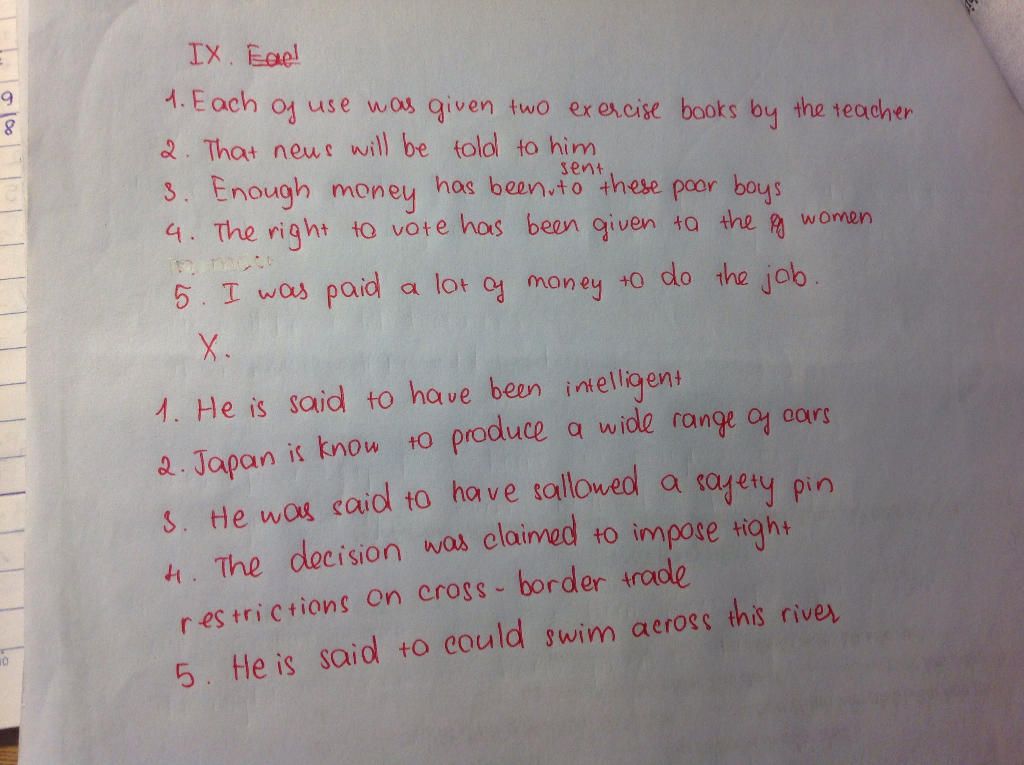 IX.
1. Each of use was given two exercise books by the teacher
2. That news will be told to him
sent
3. Enough money has been to these poor boys
4. The right to vote has been given to the women
5. I was paid a lot of money to do the job.
X.
1. He is said to have been intelligent
2. Japan is know to produce a wide range of cars
3. He was said to have sallowed a safety pin
4. The decision was claimed to impose tight
restrictions on cross-border trade
5. He is said to could swim across this river
9/8